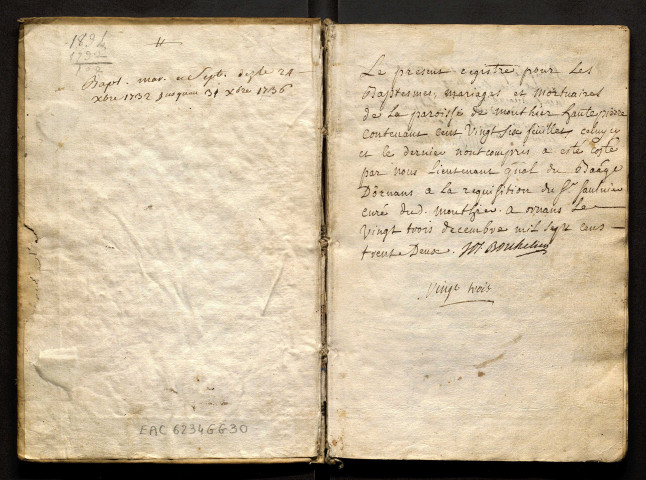 1894
1732
162
Bapt. mar. et Sept. depuis le 24
xbre 1732 jusquau 31 xbre 1736
EAC 6234GG30
Le present registre pour les
Baptesmes, mariages et mortuaires
de la paroisse de monthier hautepierre
contenant cent vingt six feuilles celuy cy
et le dernier non compris a esté cotté
par nous Lieutenant gnal du Baāge
Dornans a la requisition du Sr Saulnier
curé dud. monthier. a ornans Le
vingt trois decembre mil sept cens
trente Deux.
vingt trois